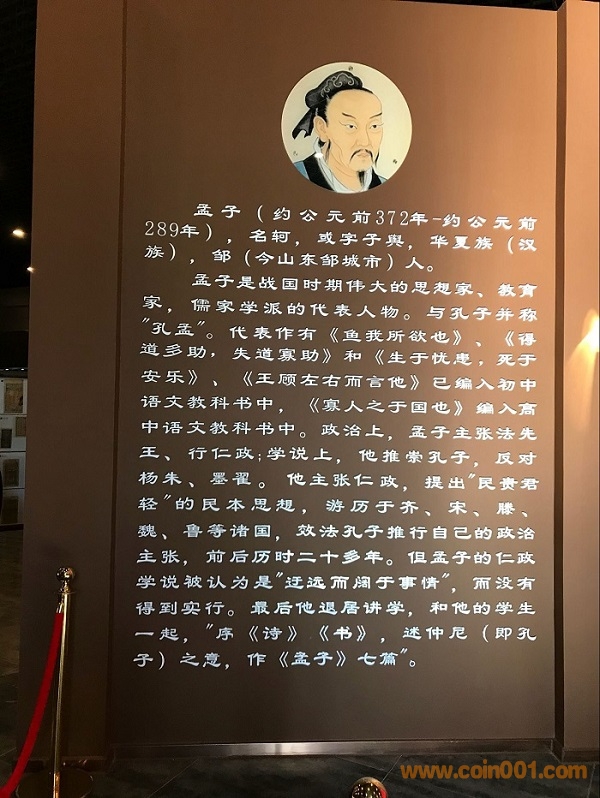 孟子（约公元前372年-约公元前
289年），名轲，或字子舆，华夏族（汉
族），邹（今山东邹城市）人。
孟子是战国时期伟大的思想家、教育
家，儒家学派的代表人物。与孔子并称
"孔孟"。代表作有《鱼我所欲也》、《得
道多助，失道寡助》和《生于忧患，死于
安乐》、《王顾左右而言他》已编入初中
语文教科书中，《寡人之于国也》编入高
中语文教科书中。政治上，孟子主张法先
王、行仁政;学说上，他推崇孔子，反对
杨朱、墨翟。他主张仁政，提出"民贵君
轻"的民本思想，游历于齐、宋、滕、
魏、鲁等诸国，效法孔子推行自己的政治
主张，前后历时二十多年。但孟子的仁政
学说被认为是"迂远而阔于事情"，而没有
得到实行。最后他退居讲学，和他的学生
一起，"序《诗》《书》，述仲尼（即孔
子）之意，作《孟子》七篇"。
www.coin001.com